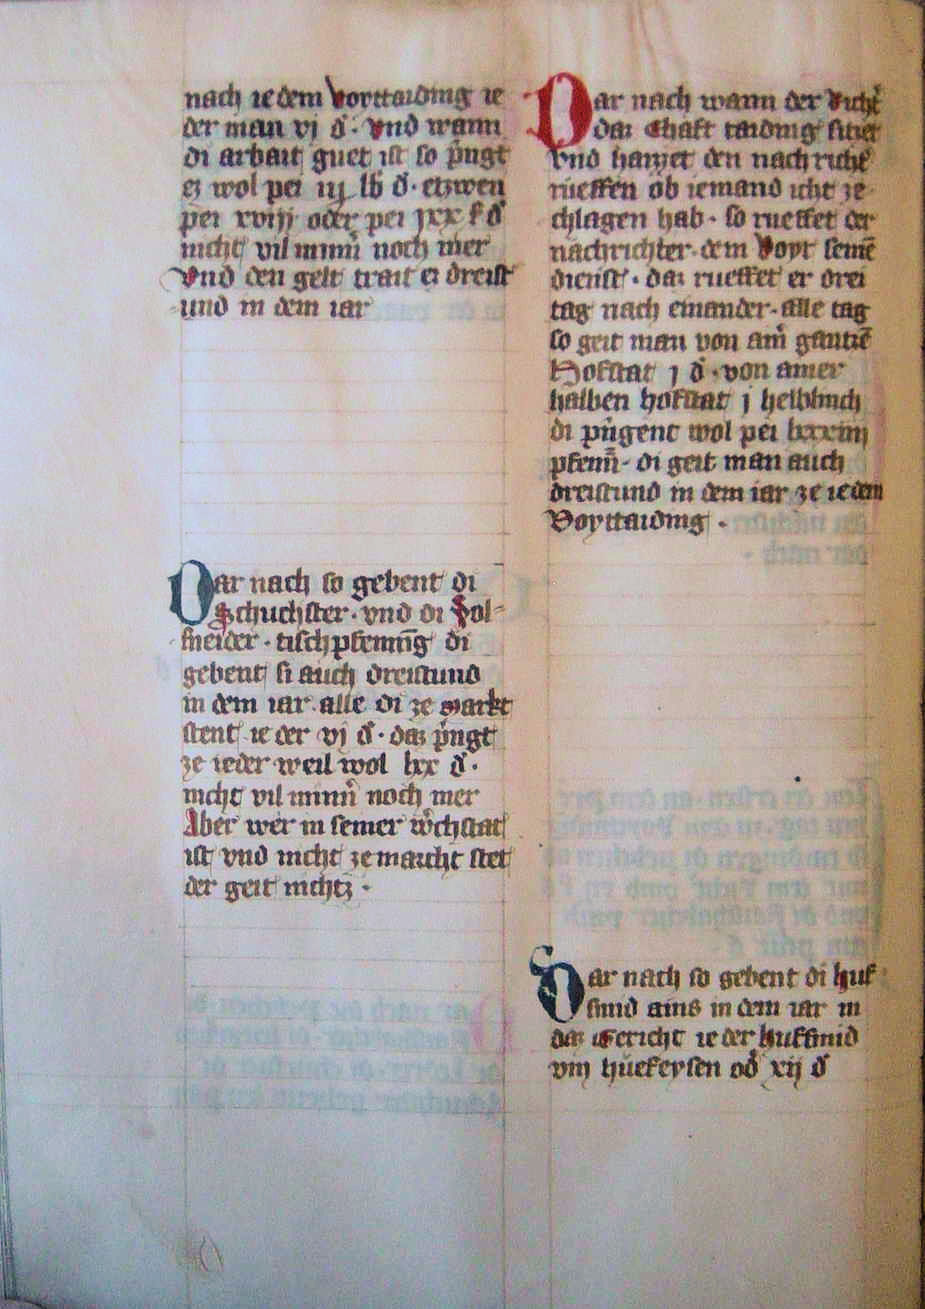 nach ie dem Vorttaiding ie
der man vj d̄ · vnd wann
di arbait guet ist so p̄ngt
ez wol pei iij lb d̄ · etzwen
pei xviij oder pei xxx d̄
nicht vil minn̄ noch mer
Vnd den gelt trait er dreist
und in dem iar
Dar nach so gebent di
Schuchster · vnd di Sol-
sneider · tischpfennīg di
gebent si auch dreistund
in dem iar alle di ze markt
stent ie der vj d̄ · daz p̄ngt
ze ieder weil wol lxx d̄ ·
nicht vil minn̄ noch mer
Aber wer in seiner w̄chstat
ist vnd nicht ze marcht stet
der geit nichtz ·
Dar nach wann der Richt̄
daz Ehaft taiding sitzet
vnd haizzet den nachricht̄
rueffen ob iemand icht ze
chlagen hab · so rueffet der
nachrichter · dem Voyt seinē
dienst · daz rueffet er drei
tag nach einander · alle tag
so geit man von aim̄ gantzē
Hofstat j d̄ · von ainer
halben hofstat j helblinch
di p̄ngent wol pei lxxxiiij
pfenn̄ · di geit man auch
dreistund in dem iar ze iedem
Voyttaiding ·
Dar nach so gebent di huf
smid ains in dem iar in
daz Gericht ie der hufsmid
viij huefeysen od̄ xij d̄